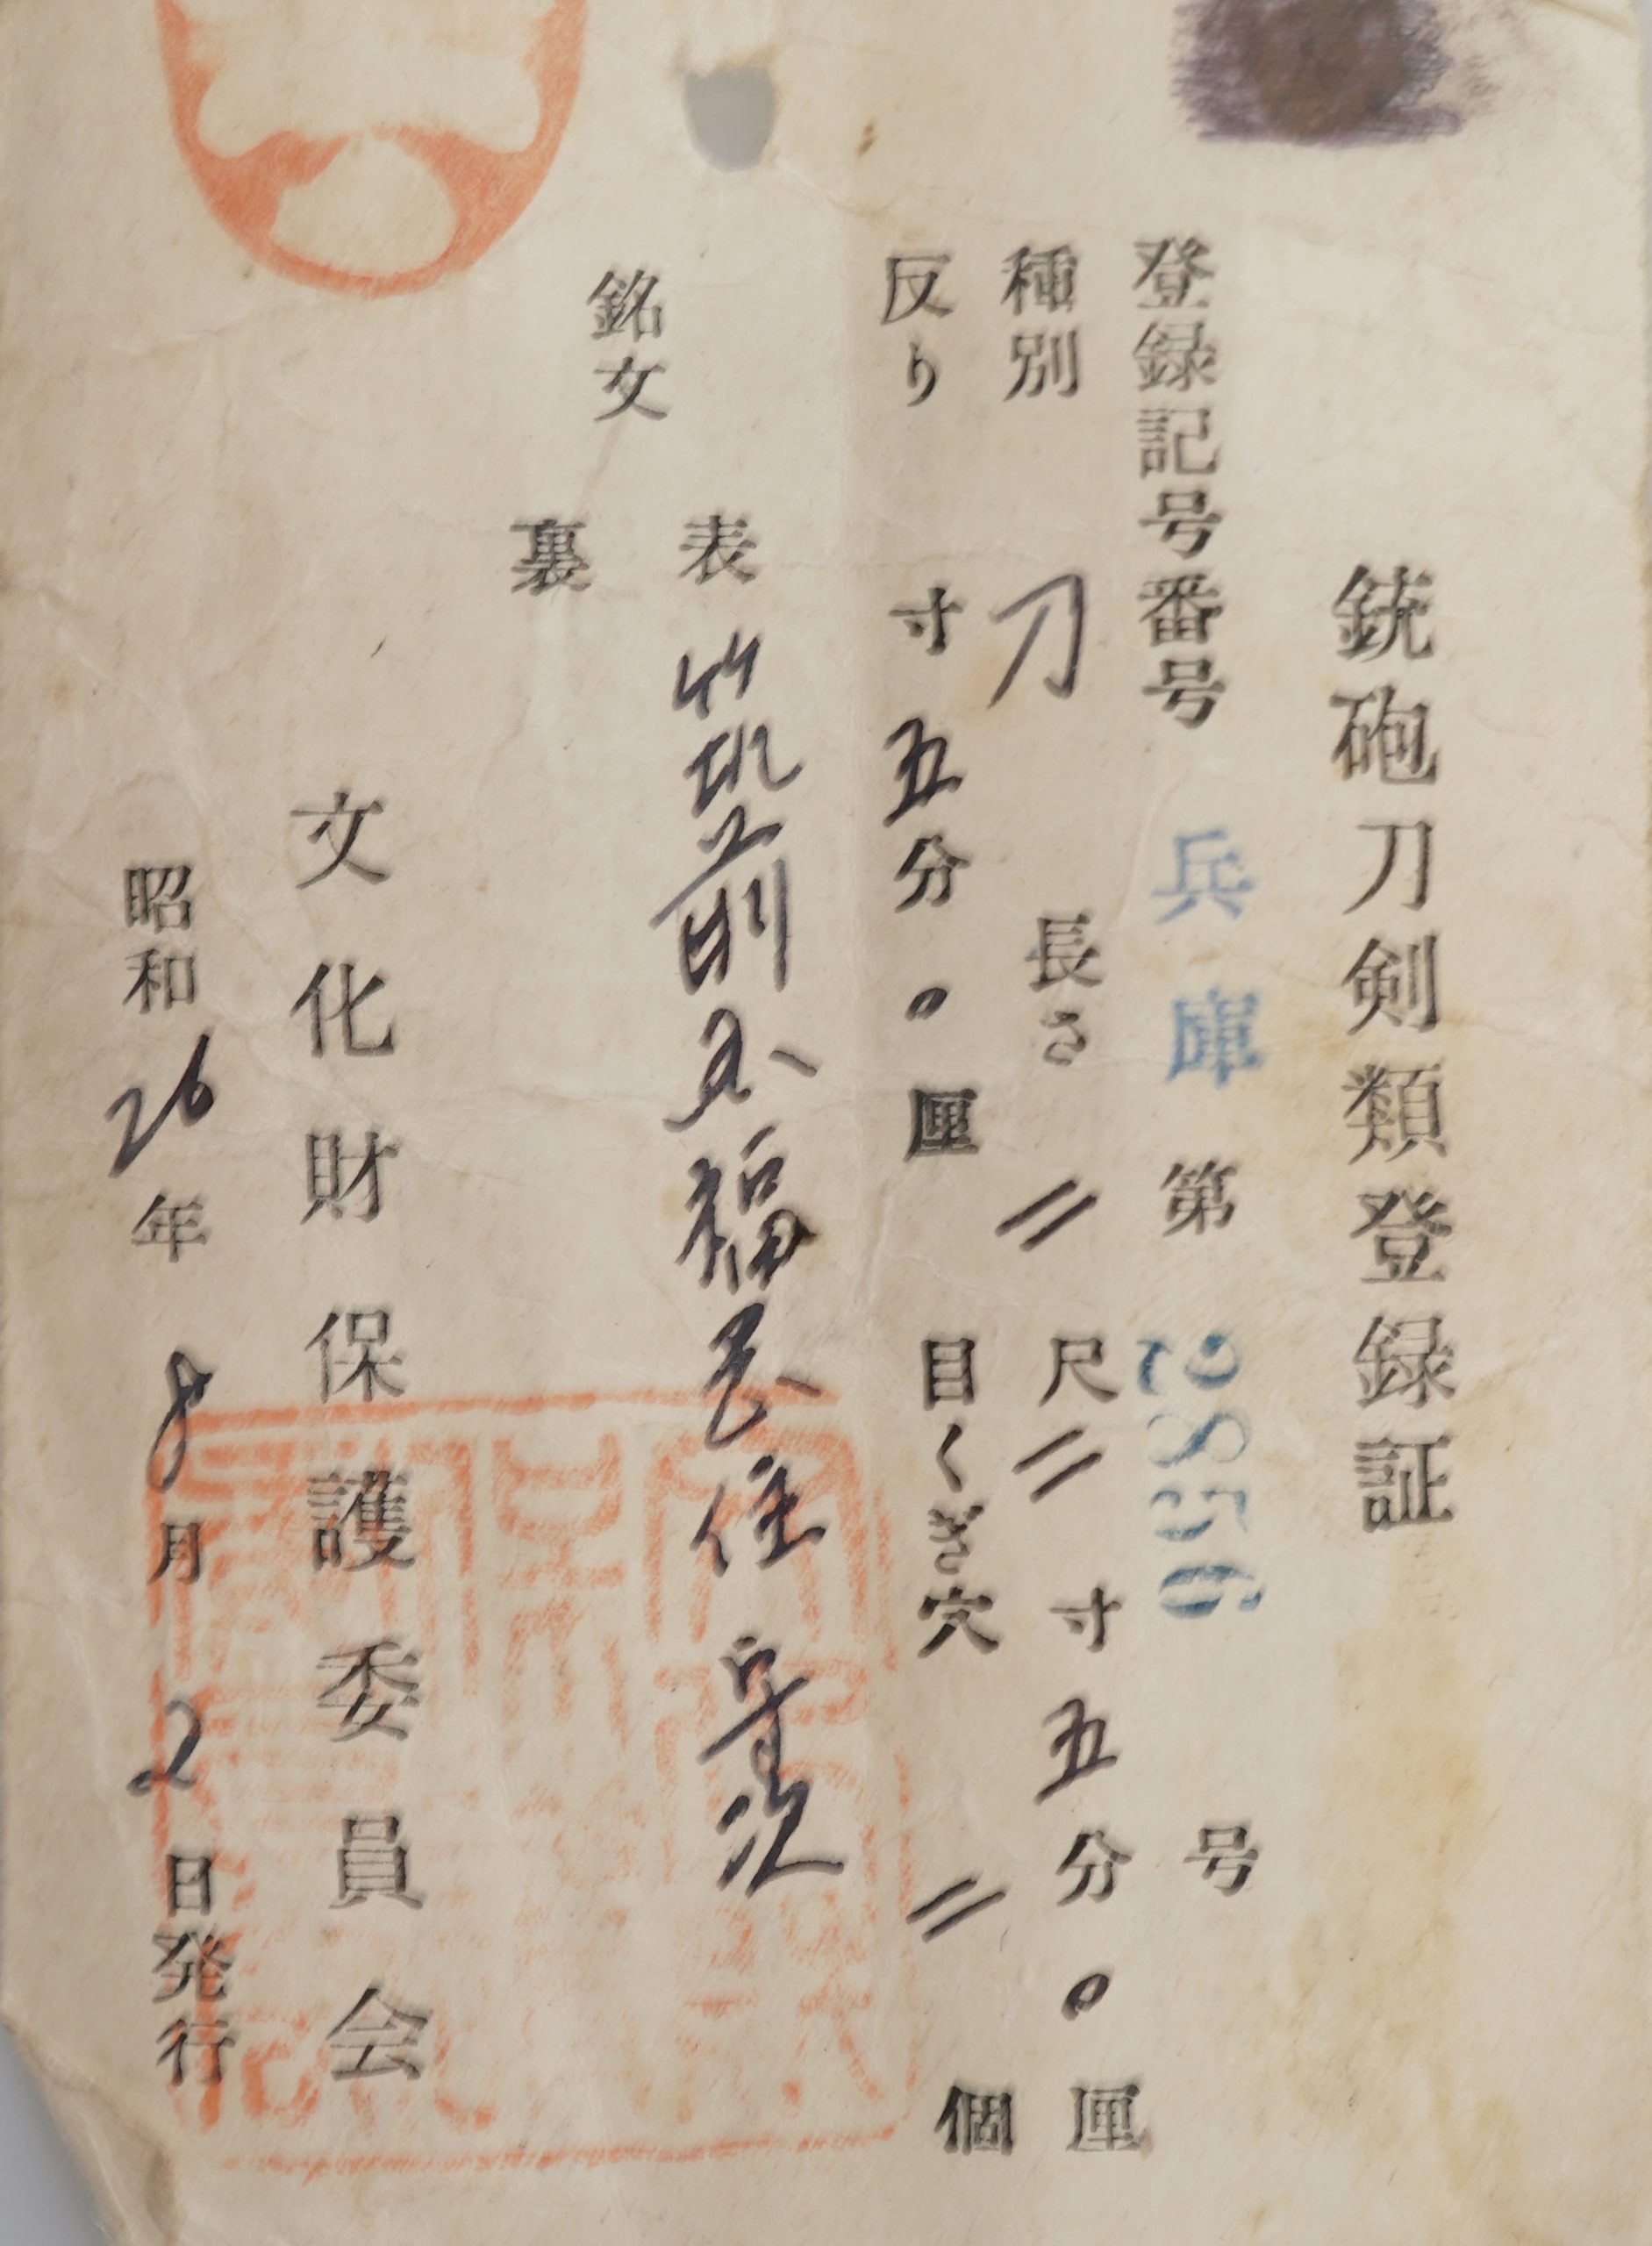 銃砲刀剣類登録証
登録記号番号 兵庫 第 2856 号
種別 刀 長さ 二尺二寸五分〇厘
反り 寸五分〇厘 目くぎ穴 二個
銘文
表 筑前国福岡住守次
裏
文化財保護委員会
昭和26年8月2日発行